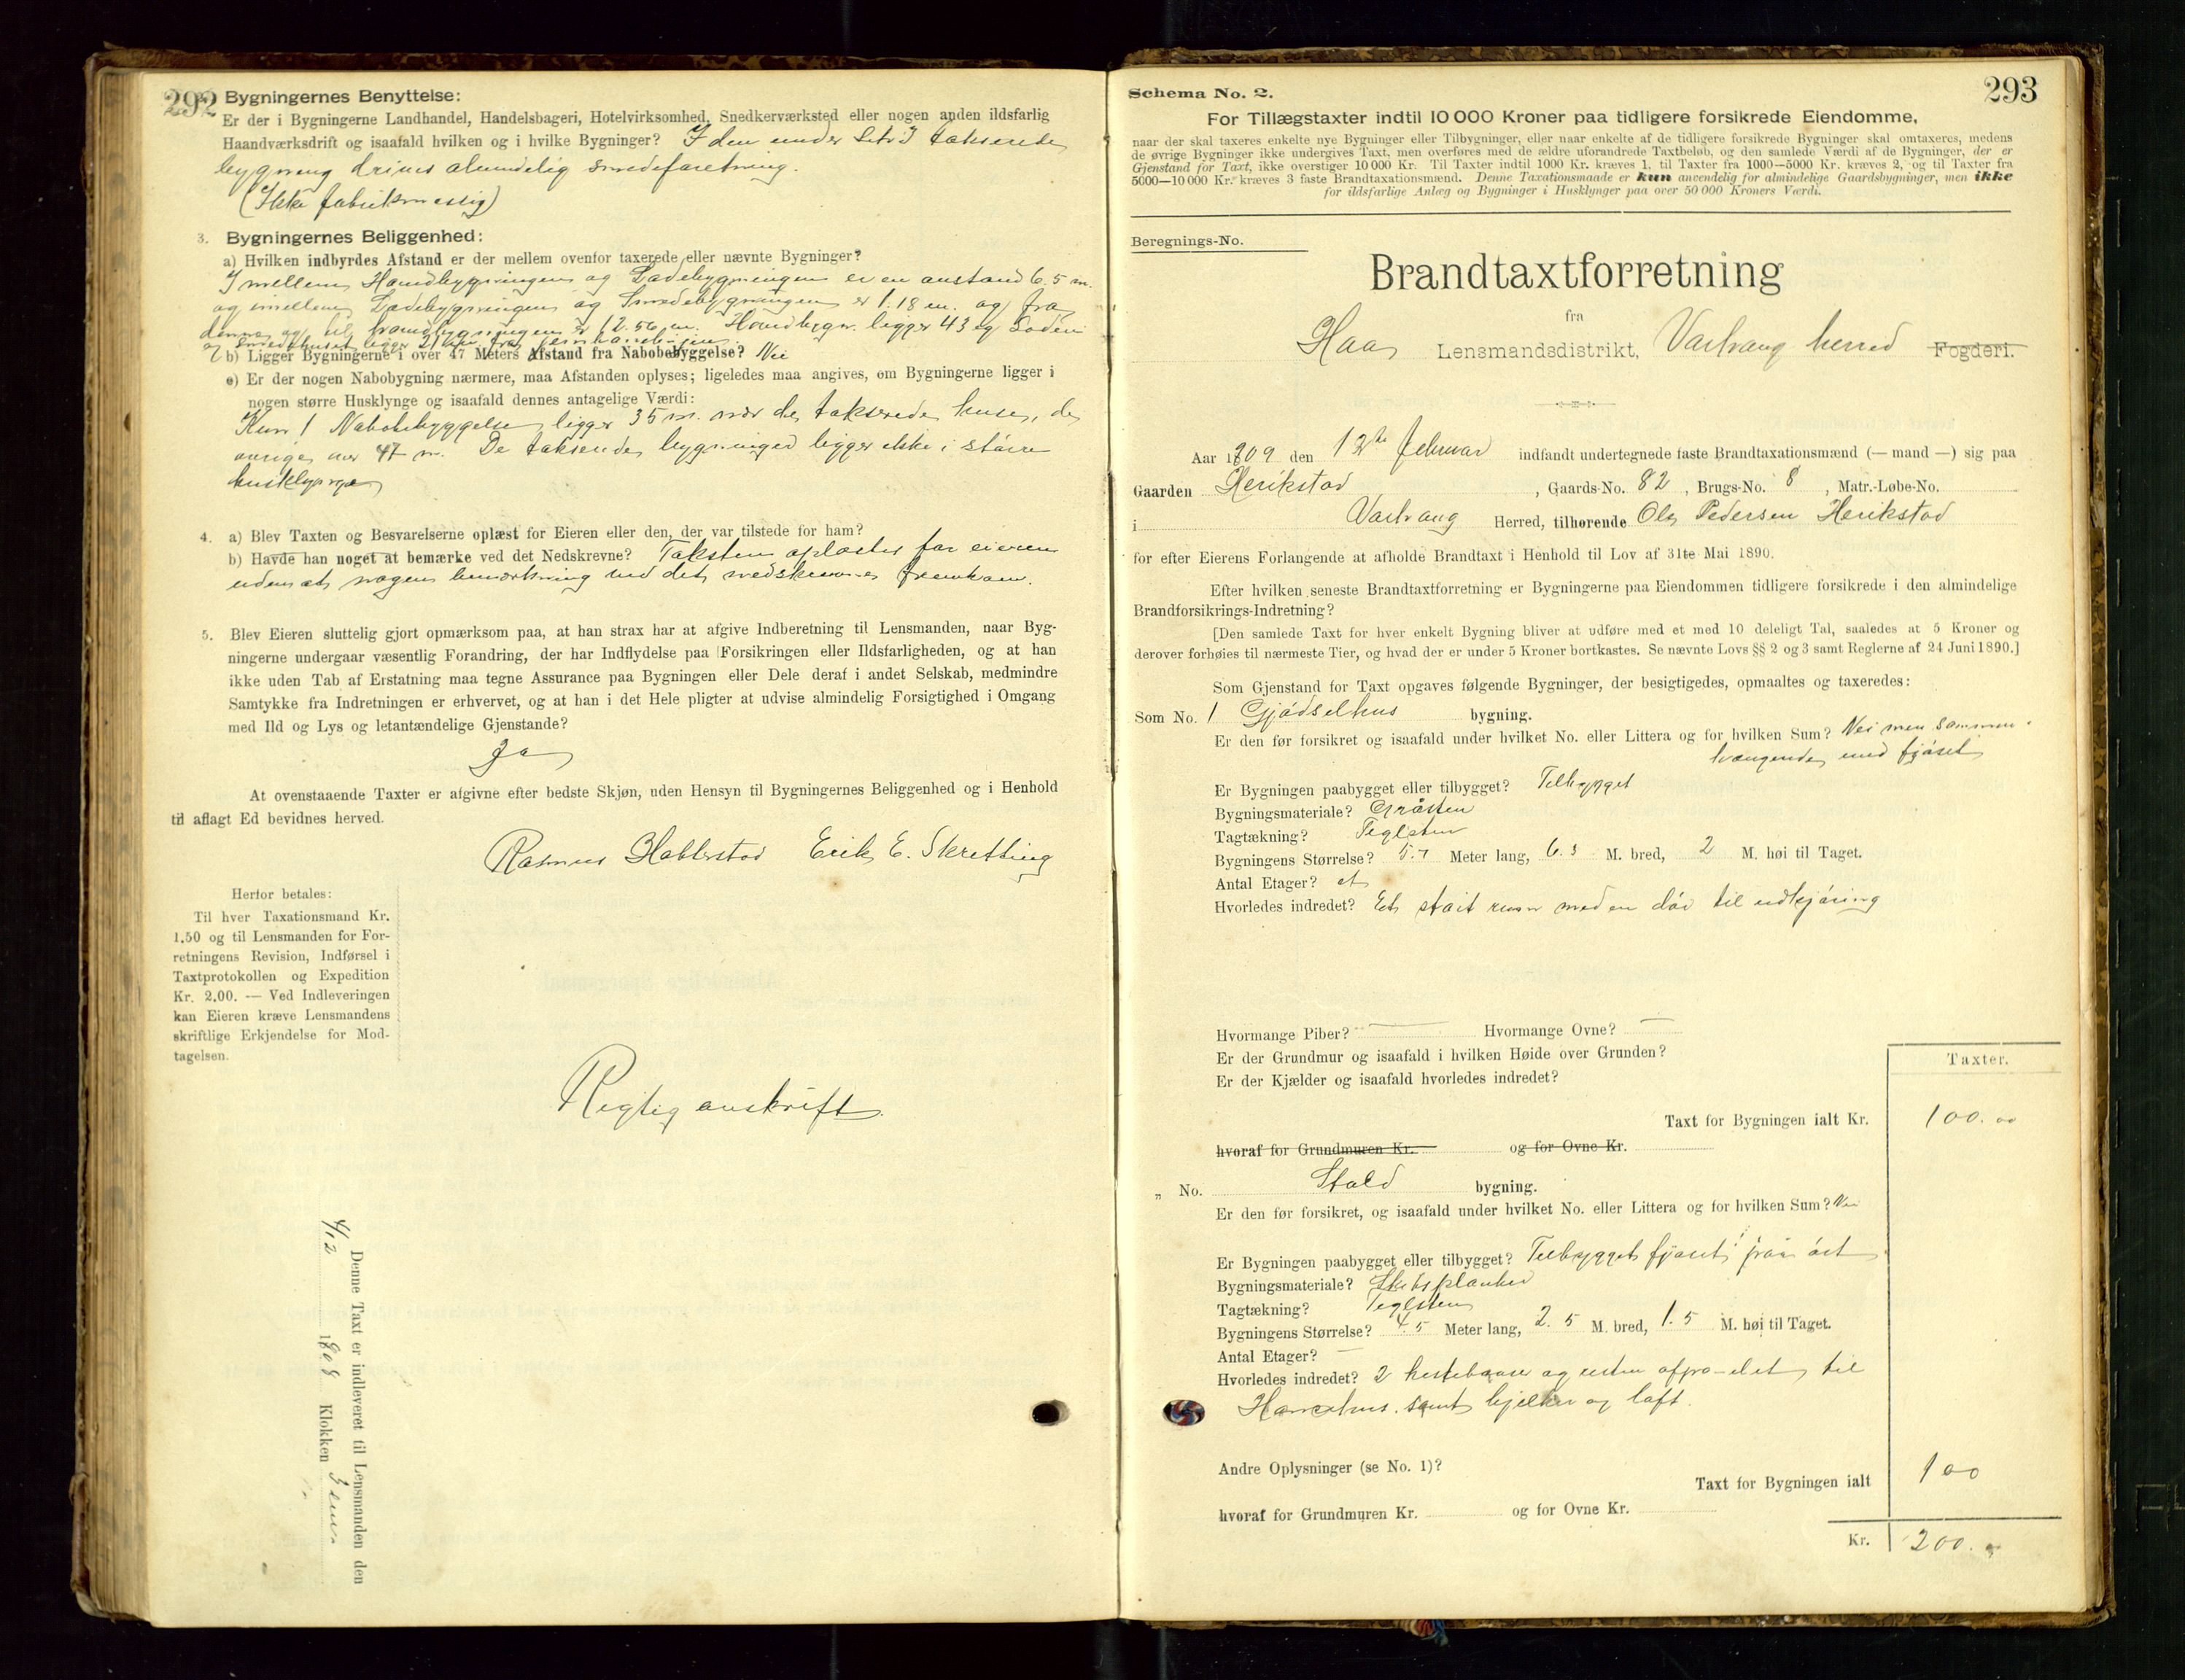 292 Bygningernes Benyttelse:
Er der i Bygningerne Landhandel, Handelsbageri, Hotelvirksomhed, Snedkerværksted eller nogen anden ildsfarlig
Haandværksdrift og isaafald hvilken og i hvilke Bygninger? I den under Litr I takserede
bygning drives almindelig smedeforretning.
(Ikke fabrikmæssig)
3. Bygningernes Beliggenhed:
a) Hvilken indbyrdes Afstand er der mellem ovenfor taxerede eller nævnte Bygninger?
Imellem Hovedbygningen og Ladebygningen er en avstand 6.5 m.
og imellem Ladebygningen og Smedebygningen er 1.18 m. og fra
denne og til hovedbygningen er 12.56 m. Hovedbygn. ligger 43 og Laden
og smedehuset ligger 21 m. fra jernbanelinjen
b) Ligger Bygningerne i over 47 Meters Afstand fra Nabobebyggelse? Nei
c) Er der nogen Nabobygning nærmere, maa Afstanden oplyses; ligeledes maa angives, om Bygningerne ligger i
nogen større Husklynge og isaafald dennes antagelige Værdi:
Kun 1 Nabobebyggelse ligger 35 m. nær de takserede huse, de
øvrige over 47 m. De takserede bygninger ligger ikke i større
husklynge
4. a) Blev Taxten og Besvarelserne oplæst for Eieren eller den, der var tilstede for ham?
b) Havde han noget at bemærke ved det Nedskrevne? Taksten oplæstes for eieren
uden at nogen bemærkning ved det nedskrevne fremkom.
5. Blev Eieren sluttelig gjort opmærksom paa, at han strax har at afgive Indberetning til Lensmanden, naar Byg-
ningerne undergaar væsentlig Forandring, der har Indflydelse paa Forsikringen eller Ildsfarligheden, og at han
ikke uden Tab af Erstatning maa tegne Assurance paa Bygningen eller Dele deraf i andet Selskab, medmindre
Samtykke fra Indretningen er erhvervet, og at han i det Hele pligter at udvise almindelig Forsigtighed i Omgang
med Ild og Lys og letantændelige Gjenstande?
Ja
At ovenstaaende Taxter er afgivne efter bedste Skjøn, uden Hensyn til Bygningernes Beliggenhed og i Henhold
til aflagt Ed bevidnes herved.
Rasmus Erik E. Skretting
Herfor betales:
Til hver Taxationsmand Kr.
1.50 og til Lensmanden for For-
retningens Revision, Indførsel i
Taxtprotokollen og Expedition
Kr. 2.00. — Ved Indleveringen
kan Eieren kræve Lensmandens
skriftlige Erkjendelse for Mod-
tagelsen.
Rigtig avskrift
Denne Taxt er indleveret til Lensmanden den
4/12 1908 Klokken
Schema No. 2. 293
For Tillægstaxter indtil 10 000 Kroner paa tidligere forsikrede Eiendomme,
naar der skal taxeres enkelte nye Bygninger eller Tilbygninger, eller naar enkelte af de tidligere forsikrede Bygninger skal omtaxeres, medens
de øvrige Bygninger ikke undergives Taxt, men overføres med de ældre uforandrede Taxtbeløb, og den samlede Værdi af de Bygninger, der er
Gjenstand for Taxt, ikke overstiger 10 000 Kr. Til Taxter indtil 1000 Kr. kræves 1, til Taxter fra 1000—5000 Kr. kræves 2, og til Taxter fra
5000—10 000 Kr. kræves 3 faste Brandtaxationsmænd. Denne Taxationsmaade er kun anvendelig for almindelige Gaardsbygninger, men ikke
for ildsfarlige Anlæg og Bygninger i Husklynger paa over 50 000 Kroners Værdi.
Beregnings-No.
Brandtaxtforretning
fra
Haa Lensmandsdistrikt, Varhaug herred Fogderi.
Aar 1909 den 12te februar indfandt undertegnede faste Brandtaxationsmænd (— mand —) sig paa
Gaarden Herikstad, Gaards-No. 82, Brugs-No. 8, Matr.-Løbe-No.
i Varhaug Herred, tilhørende Ole Pedersen Herikstad
for efter Eierens Forlangende at afholde Brandtaxt i Henhold til Lov af 31te Mai 1890.
Efter hvilken seneste Brandtaxtforretning er Bygningerne paa Eiendommen tidligere forsikrede i den almindelige
Brandforsikrings-Indretning?
[Den samlede Taxt for hver enkelt Bygning bliver at udføre med et med 10 deleligt Tal, saaledes at 5 Kroner og
derover forhøies til nærmeste Tier, og hvad der er under 5 Kroner bortkastes. Se nævnte Lovs §§ 2 og 3 samt Reglerne af 24 Juni 1890.]
Som Gjenstand for Taxt opgaves følgende Bygninger, der besigtigedes, opmaaltes og taxeredes:
Som No. 1 Gjødselhus bygning.
Er den før forsikret og isaafald under hvilket No. eller Littera og for hvilken Sum? Nei men sammen-
hængende med fjøset
Er Bygningen paabygget eller tilbygget? Tilbygget
Bygningsmateriale? Gråsten
Tagtækning? Teglsten
Bygningens Størrelse? 5.7 Meter lang, 6.3 M. bred, 2 M. høi til Taget.
Antal Etager? et
Hvorledes indredet? Et stort rum med en dør til udkjøring
Hvormange Piber? — Hvormange Ovne? —
Er der Grundmur og isaafald i hvilken Høide over Grunden?
Er der Kjælder og isaafald hvorledes indredet?
Taxter.
Taxt for Bygningen ialt Kr. 100.00
hvoraf for Grundmuren Kr. og for Ovne Kr.
„ No. Stald bygning.
Er den før forsikret, og isaafald under hvilket No. eller Littera og for hvilken Sum? Nei
Er Bygningen paabygget eller tilbygget? Tilbygget fjøset på øst
Bygningsmateriale? Skibsplanker
Tagtækning? Teglsten
Bygningens Størrelse? 4.5 Meter lang, 2.5 M. bred, 1.5 M. høi til Taget.
Antal Etager? —
Hvorledes indredet? 2 hestebaase og resten til
samt bjelker og loft.
Andre Oplysninger (se No. 1)?
Taxt for Bygningen ialt 100
hvoraf for Grundmuren Kr. og for Ovne Kr.
Kr. 200.